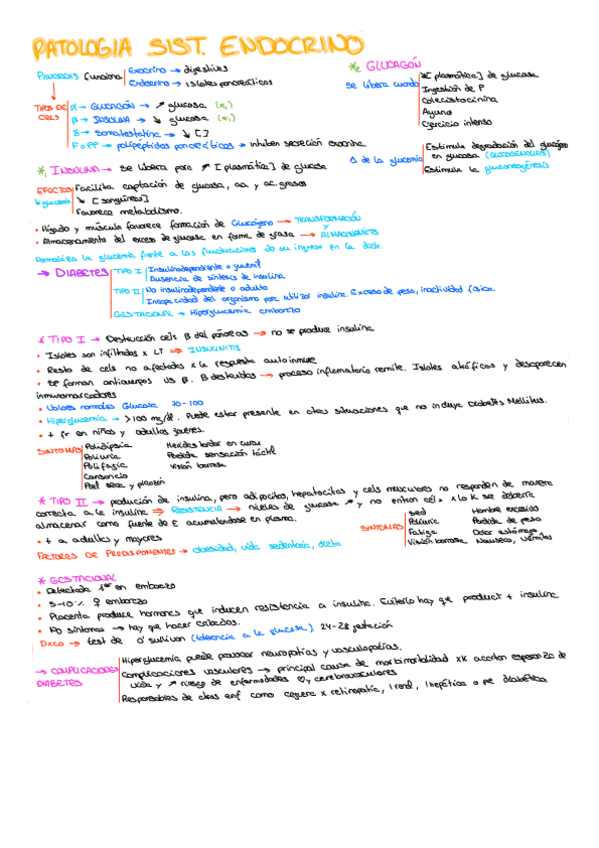 PATOLOGIA SIST. ENDOCRINO
PANCREAS funciona Exocrino → digestivas
Endocrino → islotes pancreáticos
TIPOS DE CELS
α → GLUCAGÓN → ↗ glucosa (*2)
β → INSULINA → ↘ glucosa (*1)
δ → Somatostatina → ↘ [ ]
F o PP → polipéptidos pancreáticos → inhiben secreción exocrina
*2 GLUCAGÓN
se libera cuando
↘[plasmática] de glucosa
Ingestión de P
Colecistocinina
Ayuno
Ejercicio intenso
Δ de la glucemia
Estimula degradación del glucógeno
en glucosa (GLUCOGENOLISIS)
Estimula la gluconeogénesis
*1 INSULINA → se libera para ↗ [plasmática] de glucosa
EFECTOS
↘ glucemia
Facilita captación de glucosa, aa y ac. grasos
↘ [sanguínea]
Favorece metabolismo.
• Hígado y músculo favorece formación de Glucógeno → TRANSFORMACIÓN
y
• Almacenamiento del exceso de glucosa en forme de grasa → ALMACENAMIENTO
Normaliza la glucemia frente a las fluctuaciones de su ingreso en la dieta
→ DIABETES
TIPO I Insulinodependiente o juvenil
Ausencia de síntesis de insulina
TIPO II No insulinodependiente o adulto
Incapacidad del organismo para utilizar insulina. Exceso de peso, inactividad física
GESTACIONAL → Hiperglucemia embarazo
* TIPO I → Destrucción cels β del páncreas → no se produce insulina
• Islotes son infiltrados x LT → INSULINITIS
• Resto de cels no afectadas x la respuesta autoinmune
• se forman anticuerpos vs β. β destruidas → proceso inflamatorio remite. Islotes atróficos y desaparecen
inmunomarcadores
• Valores normales Glucosa 70-100
• Hiperglucemia → >100 mg/dl. Puede estar presente en otras situaciones que no incluye Diabetes Mellitus.
• + fr en niños y adultos jovenes.
SINTOMAS
Polidipsia
Poliuria
Polifagia
Cansancio
Piel seca y picazón
Heridas tardar en curar
Perdida sensación táctil
Visión borrosa
* TIPO II → produción de insulina, pero adipocitos, hepatocitos y cels musculares no responden de manera
correcta a la insulina → RESISTENCIA → niveles de glucosa ↗ y no entran cel. x lo k se deberia
almacenar como fuente de E acumulandose en plasma.
• + a adultos y mayores
FACTORES DE PREDISPONENTES → obesidad, vida sedentaria, dieta
SINTOMAS
sed
Poliuria
Fatiga
Visión borrosa
Hambre excesiva
Perdida de peso
Dolor estómago
Nauseas, vómitos
* GESTACIONAL
• Detectada 1era en embarazo
• 5-10% ♀ embarazo
• Placenta produce hormonas que inducen resistencia a insulina. Evitarlo hay que product + insulina
• No síntomas → hay que hacer cribados.
Dxco → test de O'sullivan (tolerancia a la glucosa). 24-28 gestación
→ COMPLICACIONES DIABETES
Hiperglucemia puede provocar neuropatías y vasculopatías.
Complicaciones vasculares → principal causa de morbimortalidad xk acortan esperanza de
vida y ↗ riesgo de enfermedades ♡ y cerebrovasculares
Responsables de otras enf como ceguera x retinopatía, I renal, I hepática o pie diabético